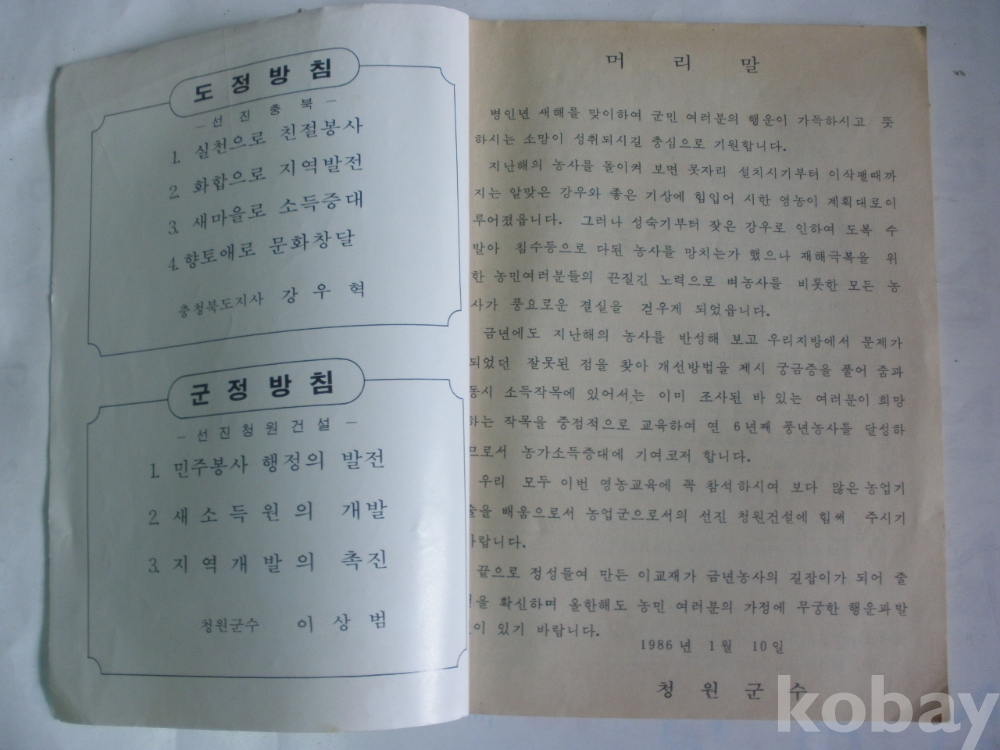 도정방침
— 선진충북 —
1. 실천으로 친절봉사
2. 화합으로 지역발전
3. 새마을로 소득증대
4. 향토애로 문화창달
충청북도지사 강우혁
군정방침
— 선진청원건설 —
1. 민주봉사 행정의 발전
2. 새소득원의 개발
3. 지역개발의 촉진
청원군수 이상범
머리말
병인년 새해를 맞이하여 군민 여러분의 행운이 가득하시고 뜻
하시는 소망이 성취되시길 충심으로 기원합니다.
지난해의 농사를 돌이켜 보면 못자리 설치시기부터 이삭팰때까
지는 알맞은 강우와 좋은 기상에 힘입어 시한 영농이 계획대로이
루어졌읍니다. 그러나 성숙기부터 잦은 강우로 인하여 도복 수
발아 침수등으로 다된 농사를 망치는가 했으나 재해극복을 위
한 농민여러분들의 끈질긴 노력으로 벼농사를 비롯한 모든 농
사가 풍요로운 결실을 걷우게 되었읍니다.
금년에도 지난해의 농사를 반성해 보고 우리지방에서 문제가
되었던 잘못된 점을 찾아 개선방법을 제시 궁금증을 풀어 줌과
동시 소득작목에 있어서는 이미 조사된 바 있는 여러분이 희망
하는 작목을 중점적으로 교육하여 연 6년째 풍년농사를 달성하
므로서 농가소득증대에 기여코저 합니다.
우리 모두 이번 영농교육에 꼭 참석하시여 보다 많은 농업기
술을 배움으로서 농업군으로서의 선진 청원건설에 힘써 주시기
바랍니다.
끝으로 정성들여 만든 이교재가 금년농사의 길잡이가 되어 줄
을 확신하며 올한해도 농민 여러분의 가정에 무궁한 행운과발
이 있기 바랍니다.
1986년 1월 10일
청원군수
kobay